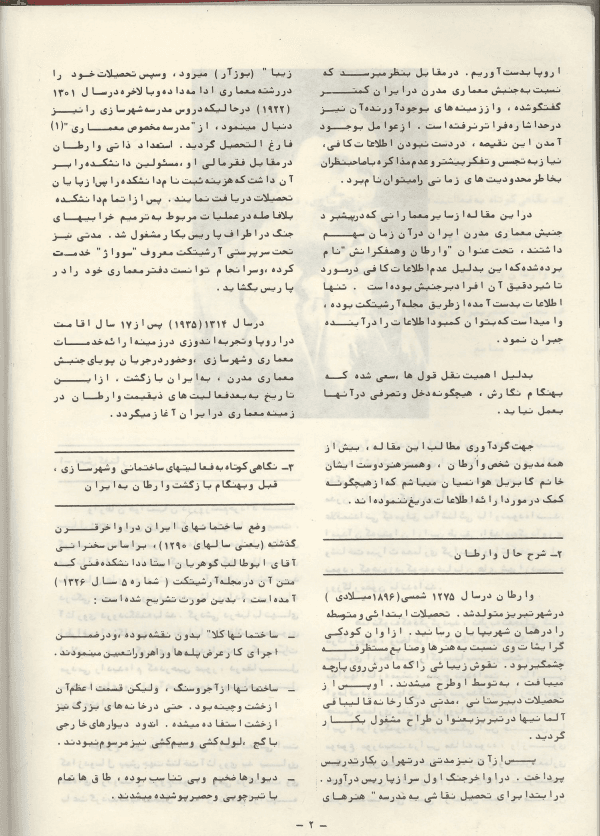 اروپا بدست آوریم. در مقابل بنظر میرسد که
نسبت به جنبش معماری مدرن در ایران کمتر
گفتگو شده ، و از زمینه های بوجود آورنده آن نیز
در حد اشاره فراتر نرفته است . از عوامل بوجود
آمدن این نقیصه ، در دست نبودن اطلاعات کافی ،
نیاز به تجسس و تفکر بیشتر و عدم مذاکره با صاحبنظران
بخاطر محدودیت های زمانی را میتوان نام برد.
در این مقاله از سایر معمارانی که در پیشبرد
جنبش معماری مدرن ایران در آن زمان سهم
داشتند ، تحت عنوان "وارطان و همفکرانش" نام
برده شده که این بدلیل عدم اطلاعات کافی در مورد
تاثیر دقیق آن افراد بر جنبش بوده است . تنها
اطلاعات بدست آمده از طریق مجله آرشیتکت بوده ،
و امید است که بتوان کمبود اطلاعات را در آینده
جبران نمود.
بدلیل اهمیت نقل قول ها ،سعی شده که
بهنگام نگارش ، هیچگونه دخل و تصرفی در آنها
بعمل نیاید.
جهت گردآوری مطالب این مقاله ، بیش از
همه مدیون شخص وارطان ، و همسر هنردوست ایشان
خانم گابریل هوانسیان میباشم که از هیچگونه
کمک در مورد ارائه اطلاعات دریغ ننموده اند .
۲- شرح حال وارطان
وارطان در سال ۱۲۷۵ شمسی (۱۸۹۶ میلادی )
در شهر تبریز متولد شد . تحصیلات ابتدائی و متوسطه
را در همان شهر بپایان رسانید . از اوان کودکی
گرایشات وی نسبت به هنرها و صنایع مستظرفه
چشمگیر بود . نقوش زیبائی را که مادرش روی پارچه
میبافت ، به توسط او طرح میشدند . او پس از
تحصیلات دبیرستانی ، مدتی در کارخانه قالیبافی
آلمانیها در تبریز بعنوان طراح مشغول بکار
گردید .
پس از آن نیز مدتی در تهران بکار تدریس
پرداخت . در اواخر جنگ اول سر از پاریس درآورد .
در ابتدا برای تحصیل نقاشی به مدرسه " هنرهای
زیبا " (بوزآر) میرود ، و سپس تحصیلات خود را
در رشته معماری ادامه داده و بالاخره در سال ۱۳۰۱
(۱۹۲۲) در حالیکه دروس مدرسه شهرسازی را نیز
دنبال مینمود ، از "مدرسه مخصوص معماری "(۱)
فارغ التحصیل گردید . استعداد ذاتی وارطان
در مقابل فقر مالی او ، مسئولین دانشکده را بر
آن داشت که هزینه ثبت نام دانشکده را پس از پایان
تحصیلات دریافت نمایند . پس از اتمام دانشکده
بلافاصله در عملیات مربوط به ترمیم خرابیهای
جنگ در اطراف پاریس بکار مشغول شد . مدتی نیز
تحت سرپرستی آرشیتکت معروف "سوواژ" خدمت
کرده ، و سرانجام توانست دفتر معماری خود را در
پاریس بگشاید .
در سال ۱۳۱۴ (۱۹۳۵) پس از ۱۷ سال اقامت
در اروپا و تجربه اندوزی در زمینه ارائه خدمات
معماری و شهرسازی ، و حضور در جریان پویای جنبش
معماری مدرن ، به ایران بازگشت . از این
تاریخ به بعد فعالیت های ذیقیمت وارطان در
زمینه معماری در ایران آغاز میگردد .
۳- نگاهی کوتاه به فعالیتهای ساختمانی و شهرسازی ،
قبل و بهنگام بازگشت وارطان به ایران
وضع ساختمانهای ایران در اواخر قرن
گذشته (یعنی سالهای ۱۲۹۰) ، بر اساس سخنرانی
آقای ابوطالب گوهریان استاد دانشکده فنی که
متن آن در مجله آرشیتکت ( شماره ۵ سال ۱۳۲۶ )
آمده است ، بدین صورت تشریح شده است :
- ساختمانها کلا" بدون نقشه بوده ،و در ضمن
اجرای کار عرض پله ها و راهرو را تعیین مینمودند .
- ساختمانها از آجر و سنگ ، ولیکن قسمت اعظم آن
از خشت و چینه بود . حتی در خانه های بزرگ نیز
از خشت استفاده میشده . اندود دیوارهای خارجی
با گچ ، لوله کشی و سیم کشی نیز مرسوم نبودند .
- دیوارها ضخیم و بی تناسب بوده ، طاق ها تمام
با تیر چوبی و حصیر پوشیده میشدند .
- ۲ -